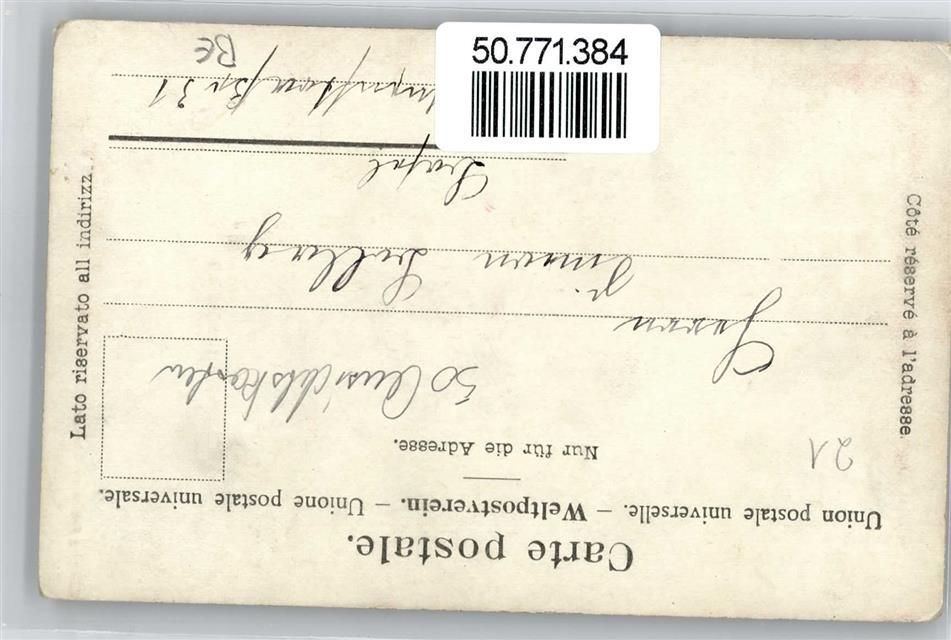 50.771.384
Carte postale.
Union postale universelle. – Weltpostverein. – Unione postale universale.
Nur für die Adresse.
21
50 Ansichtskarten
Herrn
Simon
Basel
31
Be
Côté réservé à l'adresse.
Lato riservato all indirizz